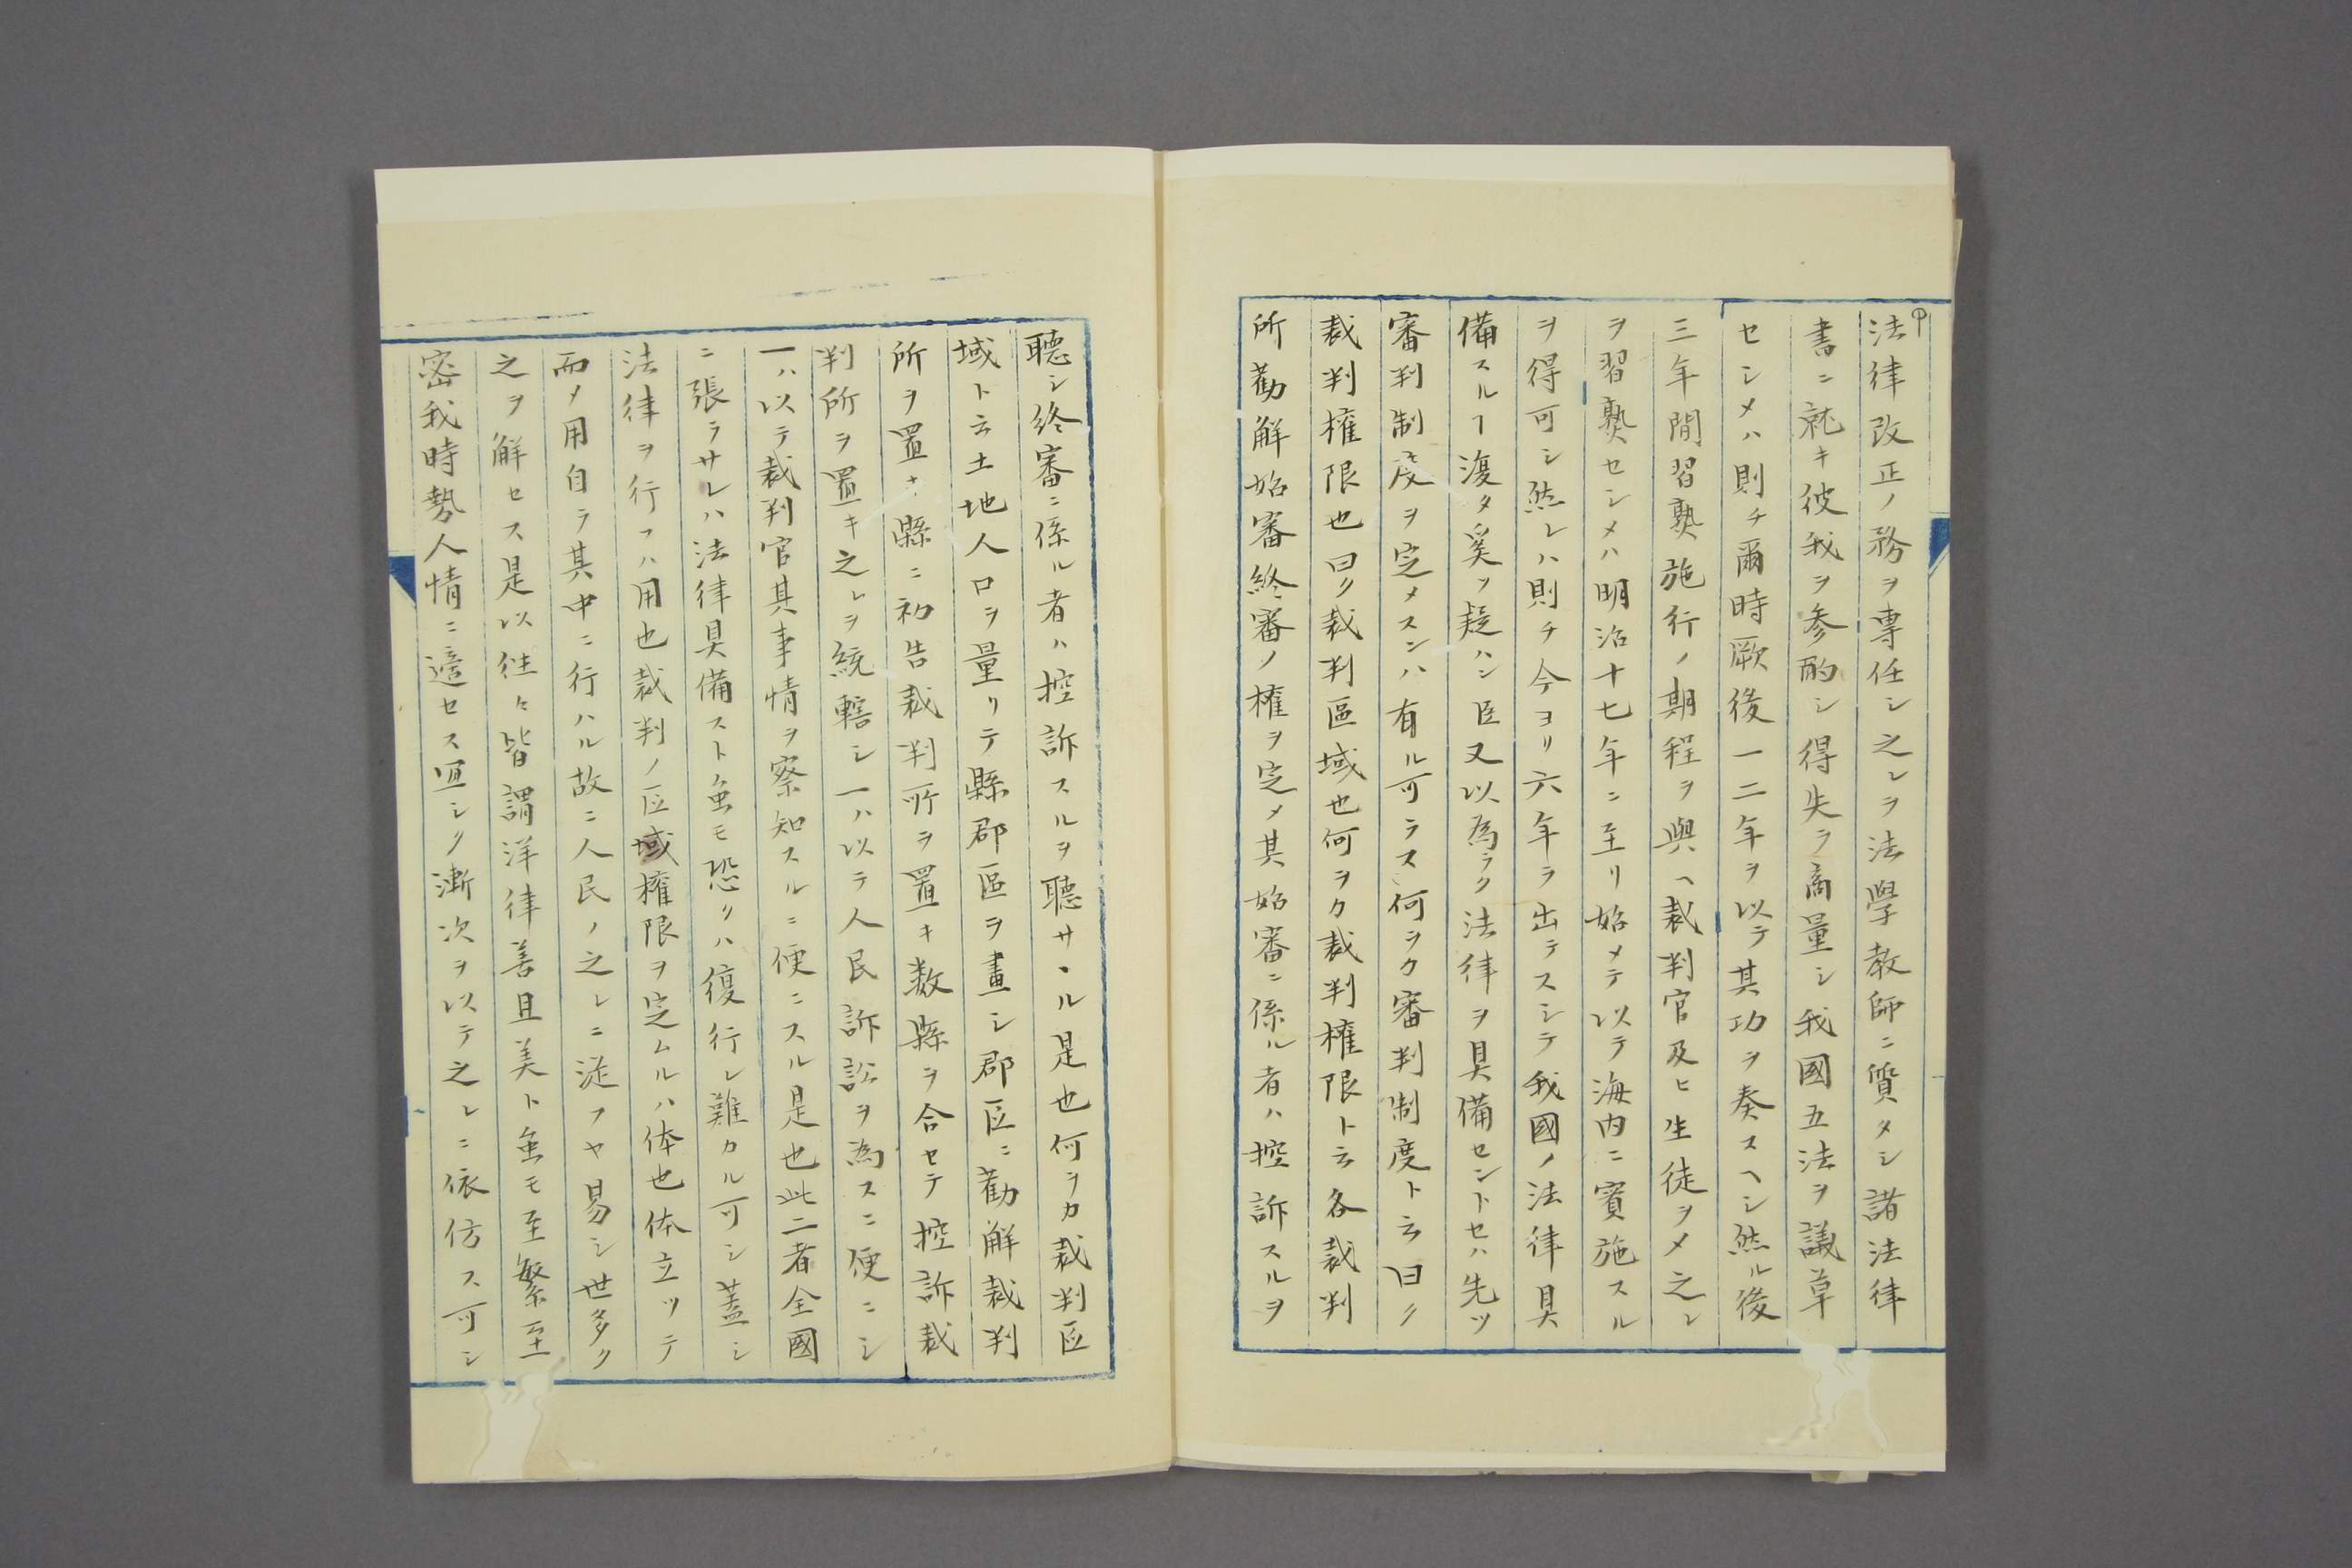 法律改正ノ務ヲ専任シ之レヲ法學教師ニ質タシ諸法律
書ニ就キ彼我ヲ参酌シ得失ヲ商量シ我國五法ヲ議草
セシメハ則チ爾時厥後一二年ヲ以テ其功ヲ奏スヘシ然ル後
三年間習熟施行ノ期程ヲ與ヘ裁判官及ヒ生徒ヲメ之レ
ヲ習熟セシメハ明治十七年ニ至リ始メテ以テ海内ニ實施スル
ヲ得可シ然レハ則チ今ヨリ六年ヲ出テスシテ我國ノ法律具
備スルヿ復タ奚ヲ疑ハン臣又以為ラク法律ヲ具備セントセハ先ツ
審判制度ヲ定メスンハ有ル可ラス何ヲヲク審判制度ト云曰ク
裁判権限也曰ク裁判區域也何ヲヲク裁判権限ト云各裁判
所勸解始審終審ノ権ヲ定メ其始審ニ係ル者ハ控訴スルヲ
聴シ終審ニ係ル者ハ控訴スルヲ聴サヽル是也何ヲヲカ裁判区
域ト云土地人口ヲ量リテ縣郡區ヲ畫シ郡区ニ勸解裁判
所ヲ置キ縣ニ初告裁判所ヲ置キ数縣ヲ合セテ控訴裁
判所ヲ置キ之レヲ統轄シ一ハ以テ人民訴訟ヲ為スニ便ニシ
一ハ以テ裁判官其事情ヲ察知スルニ便ニスル是也此二者全國
ニ張ラサレハ法律具備スト𧈧モ恐クハ復行レ難カル可シ蓋シ
法律ヲ行フハ用也裁判ノ区域権限ヲ定ムルハ体也体立ッテ
而メ用自ラ其中ニ行ハル故ニ人民ノ之レニ從フヤ易シ世多ク
之ヲ解セス是以往々皆謂洋律善且美ト𧈧モ至繁至
密我時勢人情ニ適セス宜シク漸次ヲ以テ之レニ依仿ス可シ